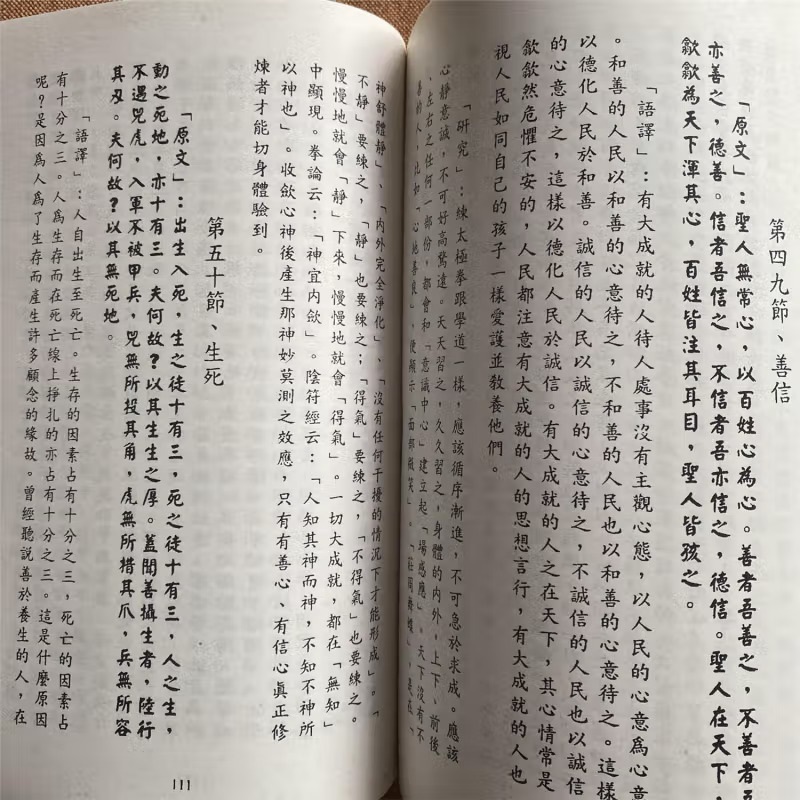 第四九節、善信
「原文」：聖人無常心，以百姓心為心。善者吾善之，不善者吾
亦善之，德善。信者吾信之，不信者吾亦信之，德信。聖人在天下，
歙歙為天下渾其心，百姓皆注其耳目，聖人皆孩之。
「語譯」：有大成就的人待人處事沒有主觀心態，以人民的心意爲心意
。和善的人民以和善的心意待之，不和善的人民也以和善的心意待之。這樣
以德化人民於和善。誠信的人民以誠信的心意待之，不誠信的人民也以誠信
的心意待之，這樣以德化人民於誠信。有大成就的人之在天下，其心情常是
歙歙然危懼不安的，人民都注意有大成就的人的思想言行，有大成就的人也
視人民如同自己的孩子一樣愛護並教養他們。
「研究」：練太極拳跟學道一樣，應該循序漸進，不可急於求成。應該
心靜意誠，不可好高騖遠。天天習之，久久習之，身體的內外，上下、前後
、左右之任何一部份，都會和「意識中心」建立起「場感應」。天下沒有不
善的人，比如「心地善良」，便顯示「面部微笑」。「莊周夢蝶」，是在「
神舒體靜」、「內外完全淨化」、「沒有任何干擾的情況下才能形成」。「
不靜」要練之，「靜」也要練之；「得氣」要練之，「不得氣」也要練之。
慢慢地就會「靜」下來，慢慢地就會「得氣」。一切大成就，都在「無知」
中顯現。拳論云：「神宜內歛」。陰符經云：「人知其神而神，不知不神所
以神也」。收歛心神後產生那神妙莫測之效應，只有有善心、有信心眞正修
煉者才能切身體驗到。
第五十節、生死
「原文」：出生入死，生之徒十有三，死之徒十有三，人之生，
動之死地，亦十有三。夫何故？以其生生之厚。蓋聞善攝生者，陸行
不遇兕虎，入軍不被甲兵，兕無所投其角，虎無所措其爪，兵無所容
其刃。夫何故？以其無死地。
「語譯」：人自出生至死亡。生存的因素占有十分之三，死亡的因素占
有十分之三。人爲生存而在死亡線上掙扎的亦占有十分之三。這是什麼原因
呢？是因爲人爲了生存而產生許多顧念的緣故。曾經聽說善於養生的人，在
111